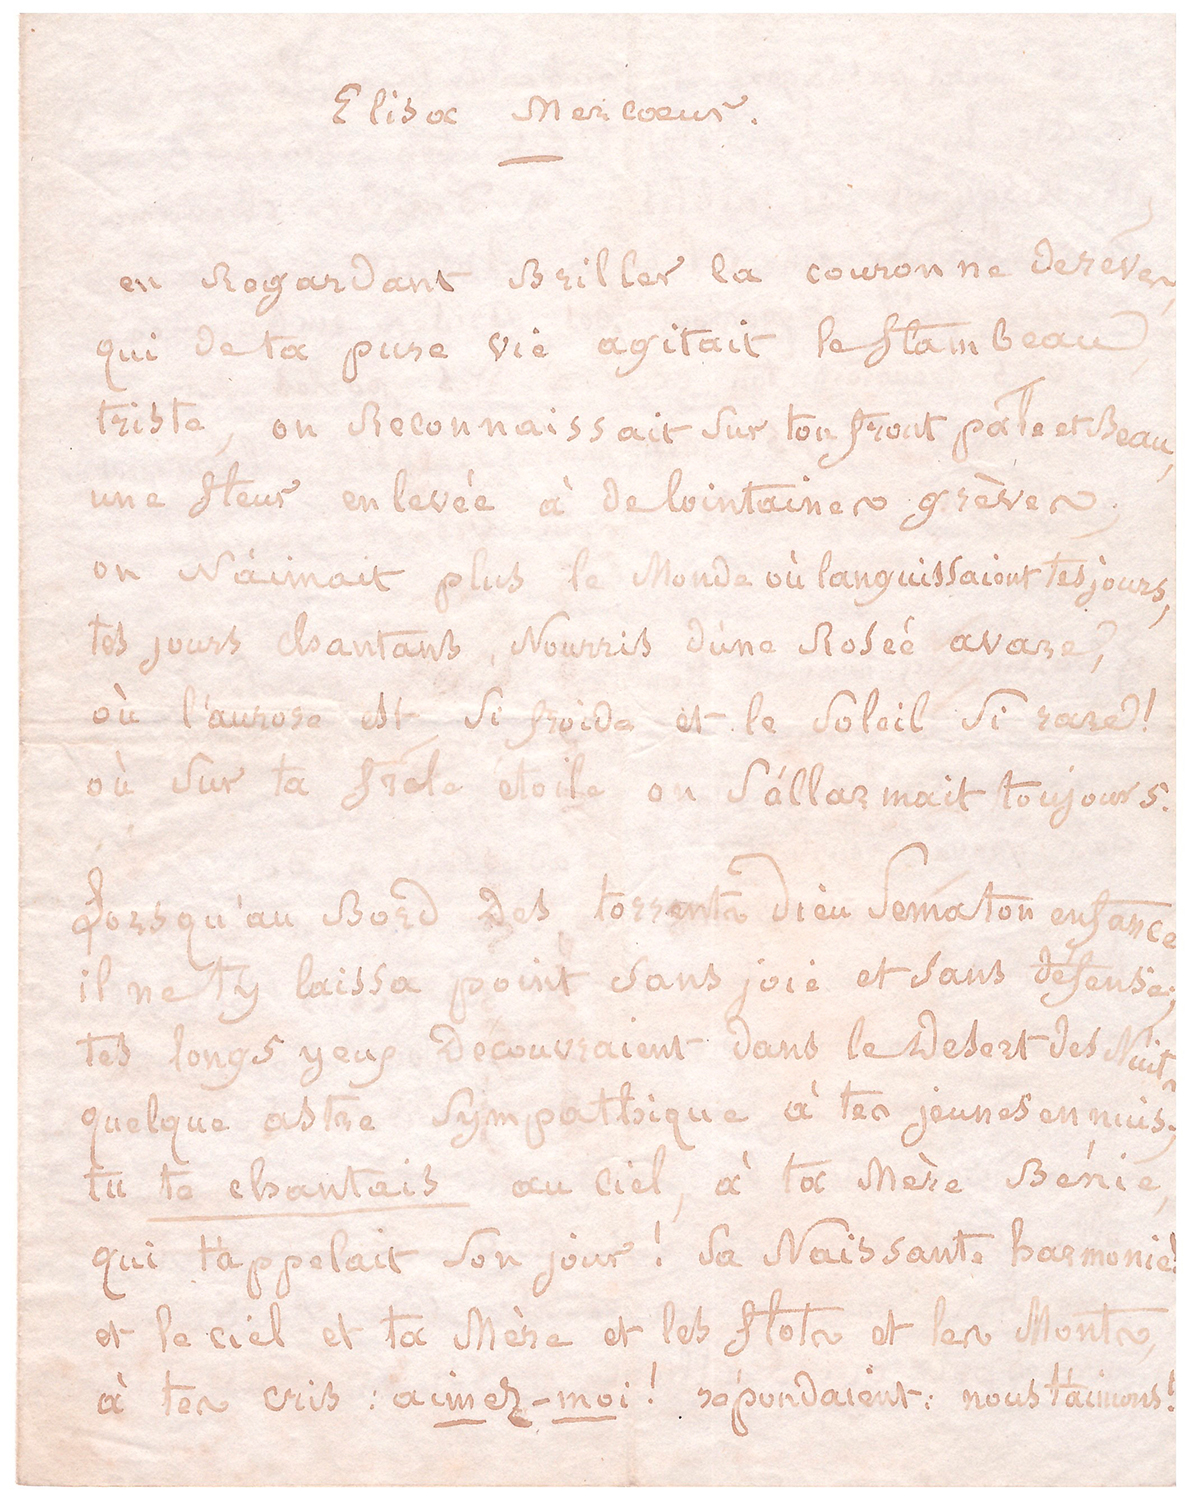 Elisa Mercoeur.
en Regardant Briller la couronne de rêves,
qui de ta pure vie agitait le flambeau,
triste, on Reconnaissait sur ton front pâle et Beau,
une fleur enlevée à de lointaines grèves,
on N'aimait plus le Monde où languissaient tes jours,
tes jours chantans, Nourris d'une Roseé avare,
où l'aurore est si froide et le soleil si rare!
où sur ta frêle étoile on s'allarmait toujours.
Lorsqu'au Bord des torrents dieu sema ton enfance
il ne t'y laissa point sans joie et sans défense;
tes longs yeux Découvraient dans le Desert des Nuits
quelque astre sympathique à tes jeunes ennuis;
tu te chantais au ciel, à ta Mère Bénie,
qui t'appelait son jour! sa Naissante harmonie!
et le ciel et ta Mère et les flots et les Monts,
à tes cris : aimez-moi! répondaient: nous t'aimons!